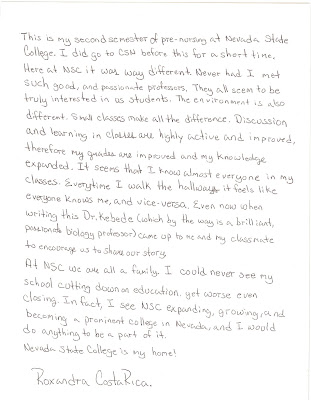 This is my second semester of pre-nursing at Nevada State
College. I did go to CSN before this for a short time.
Here at NSC it was way different. Never had I met
such good, and passionate professors. They all seem to be
truly interested in us students. The environment is also
different. Small classes make all the difference. Discussion
and learning in classes are highly active and improved,
therefore my grades are improved and my knowledge
expanded. It seems that I know almost everyone in my
classes. Everytime I walk the hallways it feels like
everyone knows me, and vice-versa. Even now when
writing this Dr. Kebede (which by the way is a brilliant,
passionate biology professor) came up to me and my classmate
to encourage us to share our story.
At NSC we are all a family. I could never see my
school cutting down on education, get worse even
closing. In fact, I see NSC expanding, growing, and
becoming a prominent college in Nevada, and I would
do anything to be a part of it.
Nevada State College is my home!
Roxandra CostaRica.